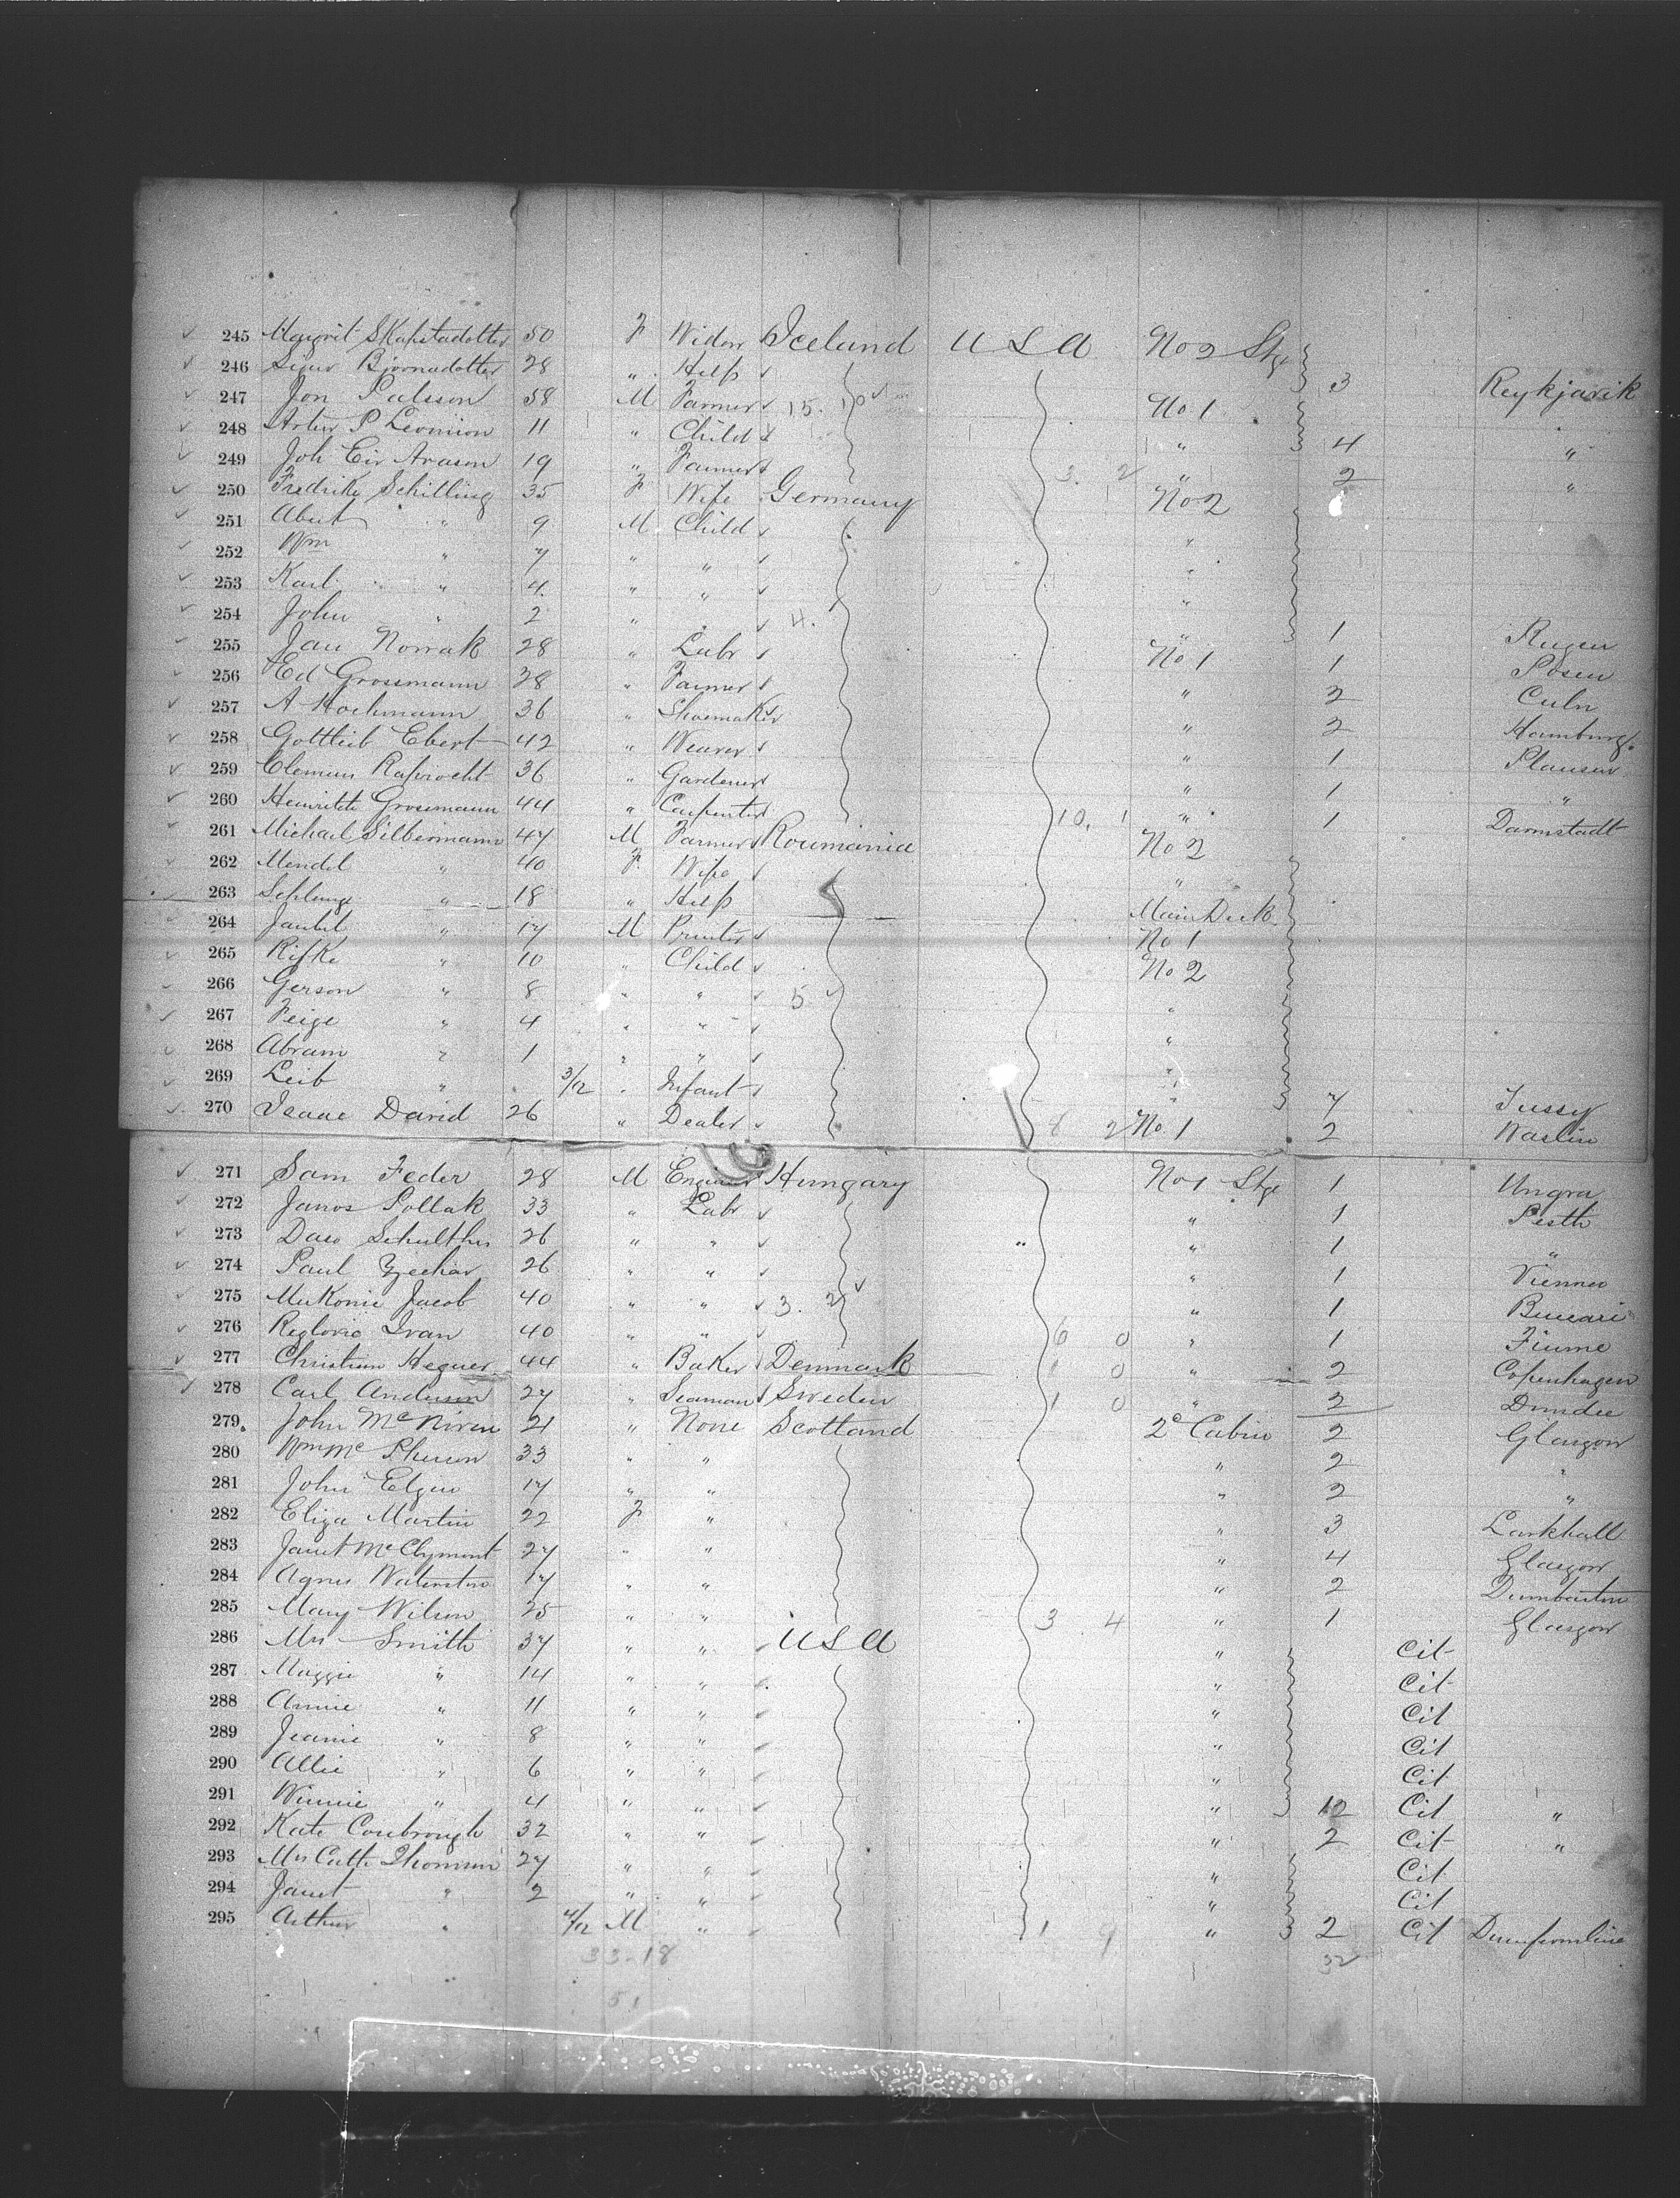 245 Margrit Skapstadotter 50 F Widow Iceland U S A No 2 Stge
246 Sigur Bjornadotter 28 " Help 3 Reykjavik
247 Jon Palsson 58 M Farmer 15. 10 No 1
248 Artur P Leonsion 11 " Child " 4 "
249 Joh Eir Arason 19 " Farmer 3. 2 " 2 "
250 Fredrike Schilling 35 F Wife Germany No 2
251 Abert " 9 M Child "
252 Wm " 7 " " "
253 Karl " 4 " " "
254 John " 2 " " 4. " 1 Rugen
255 Jan Nowak 28 " Labr No 1 1 Posen
256 Ed Grossmann 38 " Farmer " 2 Culn
257 A Hochmann 36 " Shoemaker " 2 Hamburg
258 Gottlieb Ebert 42 " Weaver " 1 Plausen
259 Clemens 36 " Gardener " 1 "
260 Heinrich Grossmann 44 " Carpenter 10. 1 " 1 Darmstadt
261 Michael Silbermann 47 M Farmer Roumania No 2
262 Mendel " 40 F Wife "
263 Schlunge " 18 " Help Main Deck
264 Jankel " 17 M Printer No 1
265 Rifke " 10 " Child No 2
266 Gerson " 8 " " 5 "
267 Feige " 4 " " "
268 Abram " 1 " " "
269 Leib " 3/12 " Infant " 7 Jussy
270 Isaac David 26 " Dealer 8 2 No. 1 2 Waslin
271 Sam Feder 28 M Engineer Hungary No 1 Stge 1 Ungra
272 Janos Pollak 33 " Labr " 1 Pesth
273 Daso Schulther 26 " " " 1 "
274 Paul Zechar 26 " " " 1 Vienna
275 Mukonic Jacob 40 " " 3. 2 " 1 Buccari
276 Reglovic Ivan 40 " " 6 0 " 1 Fiume
277 Christian Hegner 44 " Baker Denmark 1 0 " 2 Copenhagen
278 Carl Anderson 27 " Seaman Sweden 1 0 " 2 Dundee
279 John McNiven 21 " None Scotland 2e Cabin 2 Glasgow
280 Wm McPherson 33 " " " 2 "
281 John Elgin 17 " " " 2 "
282 Eliza Martin 22 F " " 3 Larkhall
283 Janet McClymont 27 " " " 4 Glasgow
284 Agnes Waterston 17 " " " 2 Dumbarton
285 Mary Wilson 25 " " 3 4 " 1 Glasgow
286 Mrs Smith 37 " " U S A " Cit
287 Maggie " 14 " " " Cit
288 Annie " 11 " " " Cit
289 Jeanie " 8 " " " Cit
290 Allie " 6 " " " Cit
291 Winnie " 4 " " " 12 Cit "
292 Kate Coubrough 32 " " " 2 Cit "
293 Mrs Cath Thomson 27 " " " Cit
294 Janet " 2 " " " Cit
295 Arthur " 4/12 M " 1 9 " 2 Cit Dunfermline
33-18 32
51